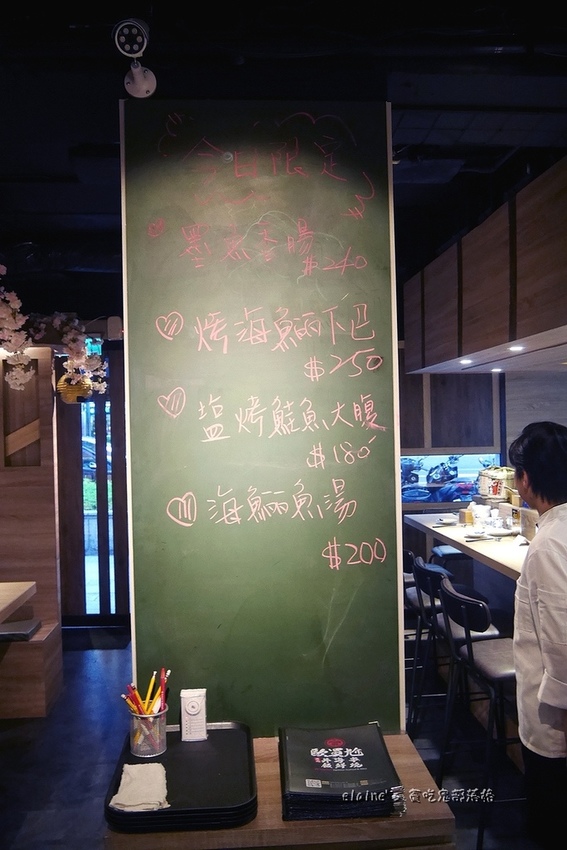 今日限定
墨魚香腸
$240
烤海鱺下巴
$250
塩烤鮭魚大腹
$180
海鱺魚湯
$200
elaine's貪吃鬼部落格